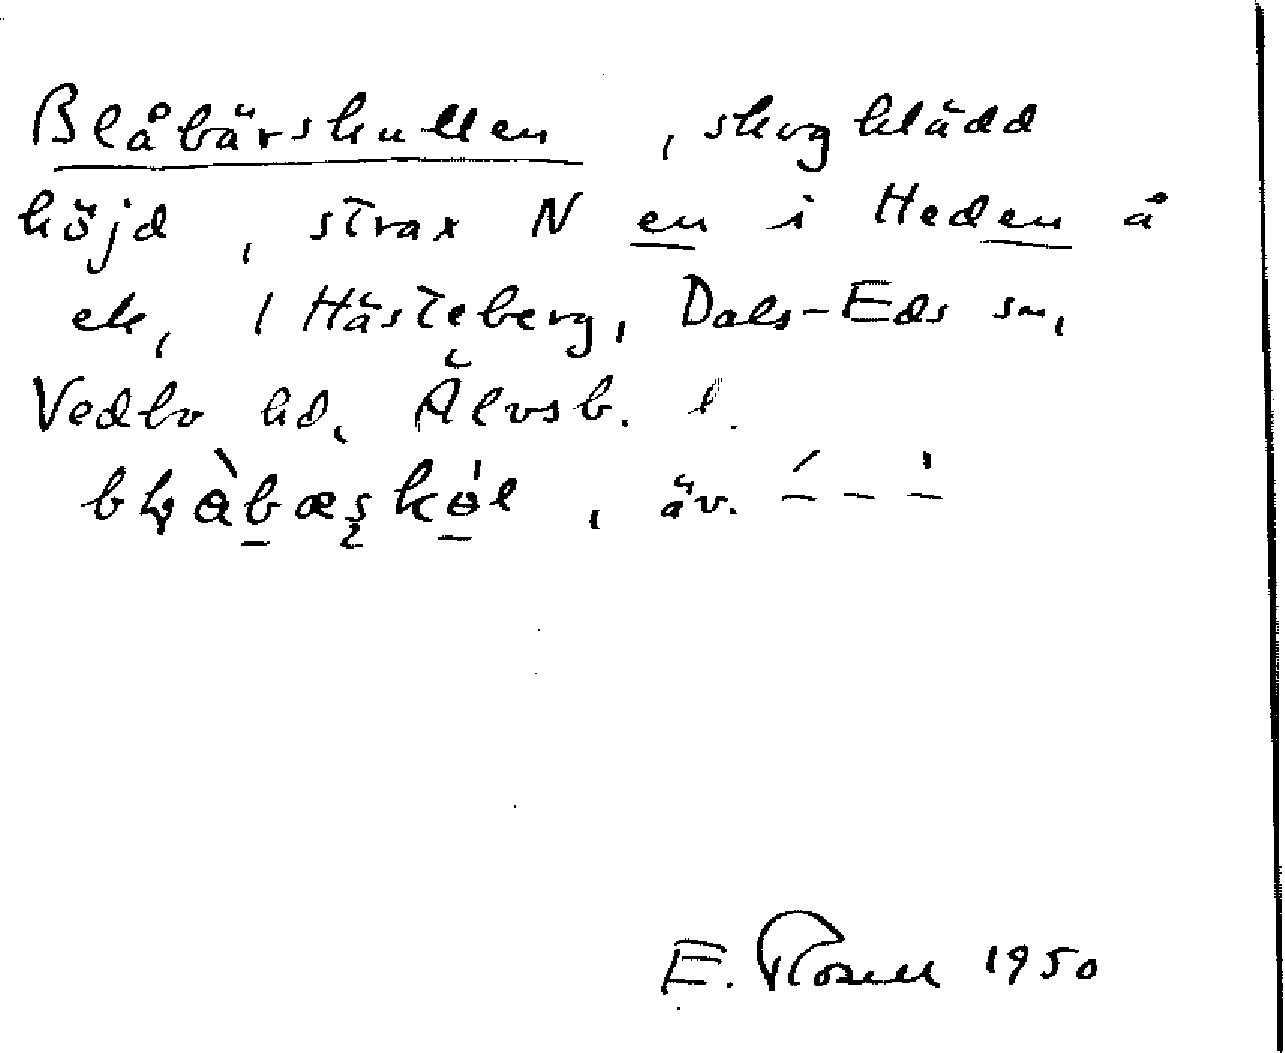 Blåbärskullen, skogklädd
höjd, strax N en i Heden å
ek, i Hästeberg, Dals-Eds sn,
Vedbo hd, Älvsb. l.
äv. ´ – – – '
E. Rosell 1950